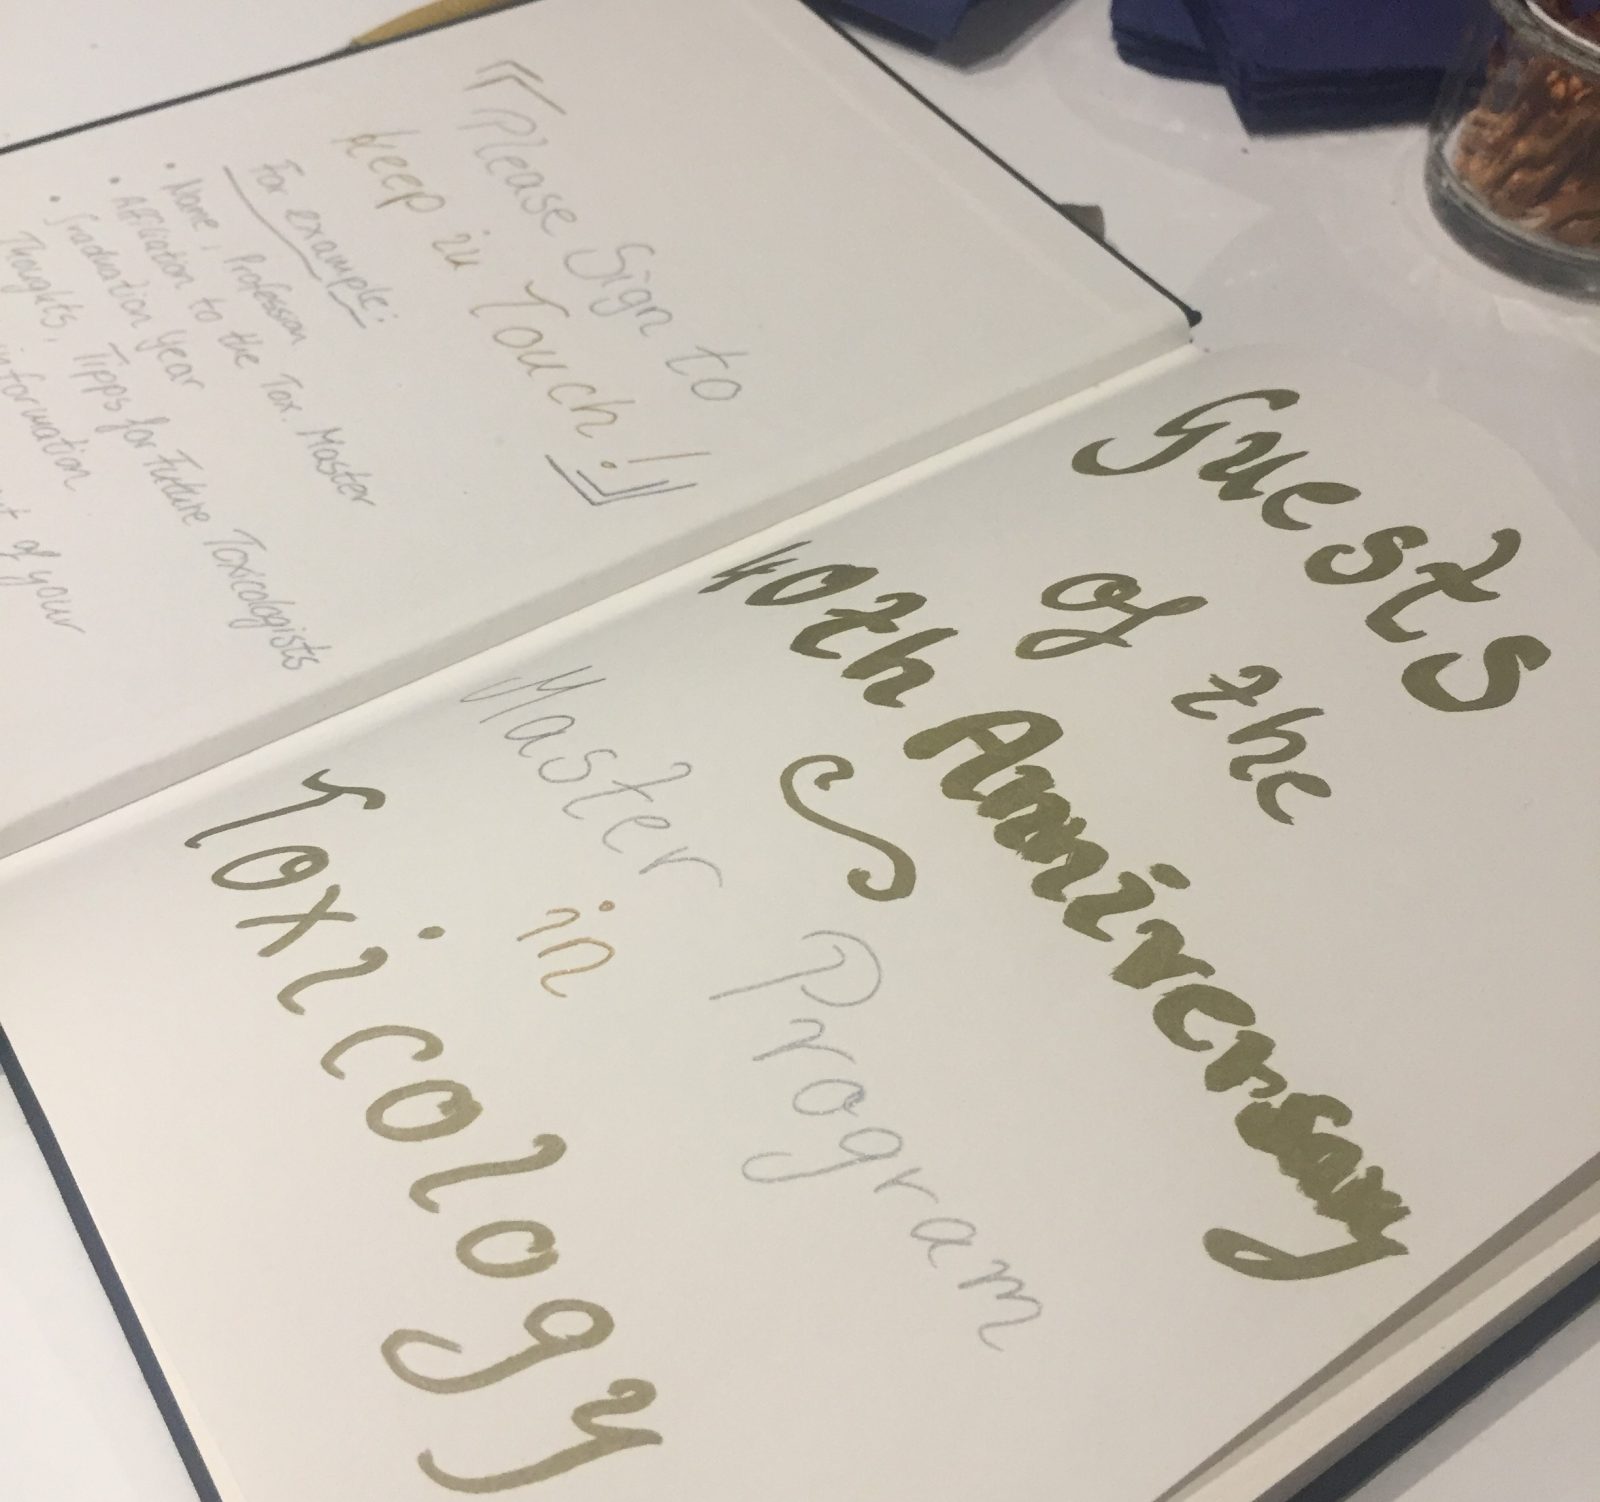 Please Sign to
Keep in Touch!
For example:
• Name, Profession
• Affiliation to the Tox. Master
• Graduation Year
Thoughts, Tipps for Future Toxicologists
information
of your
Guests
of the
40th Anniversary
Master Program
in
Toxicology